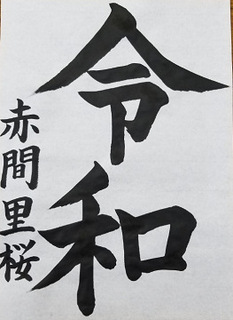 令和
赤間里桜